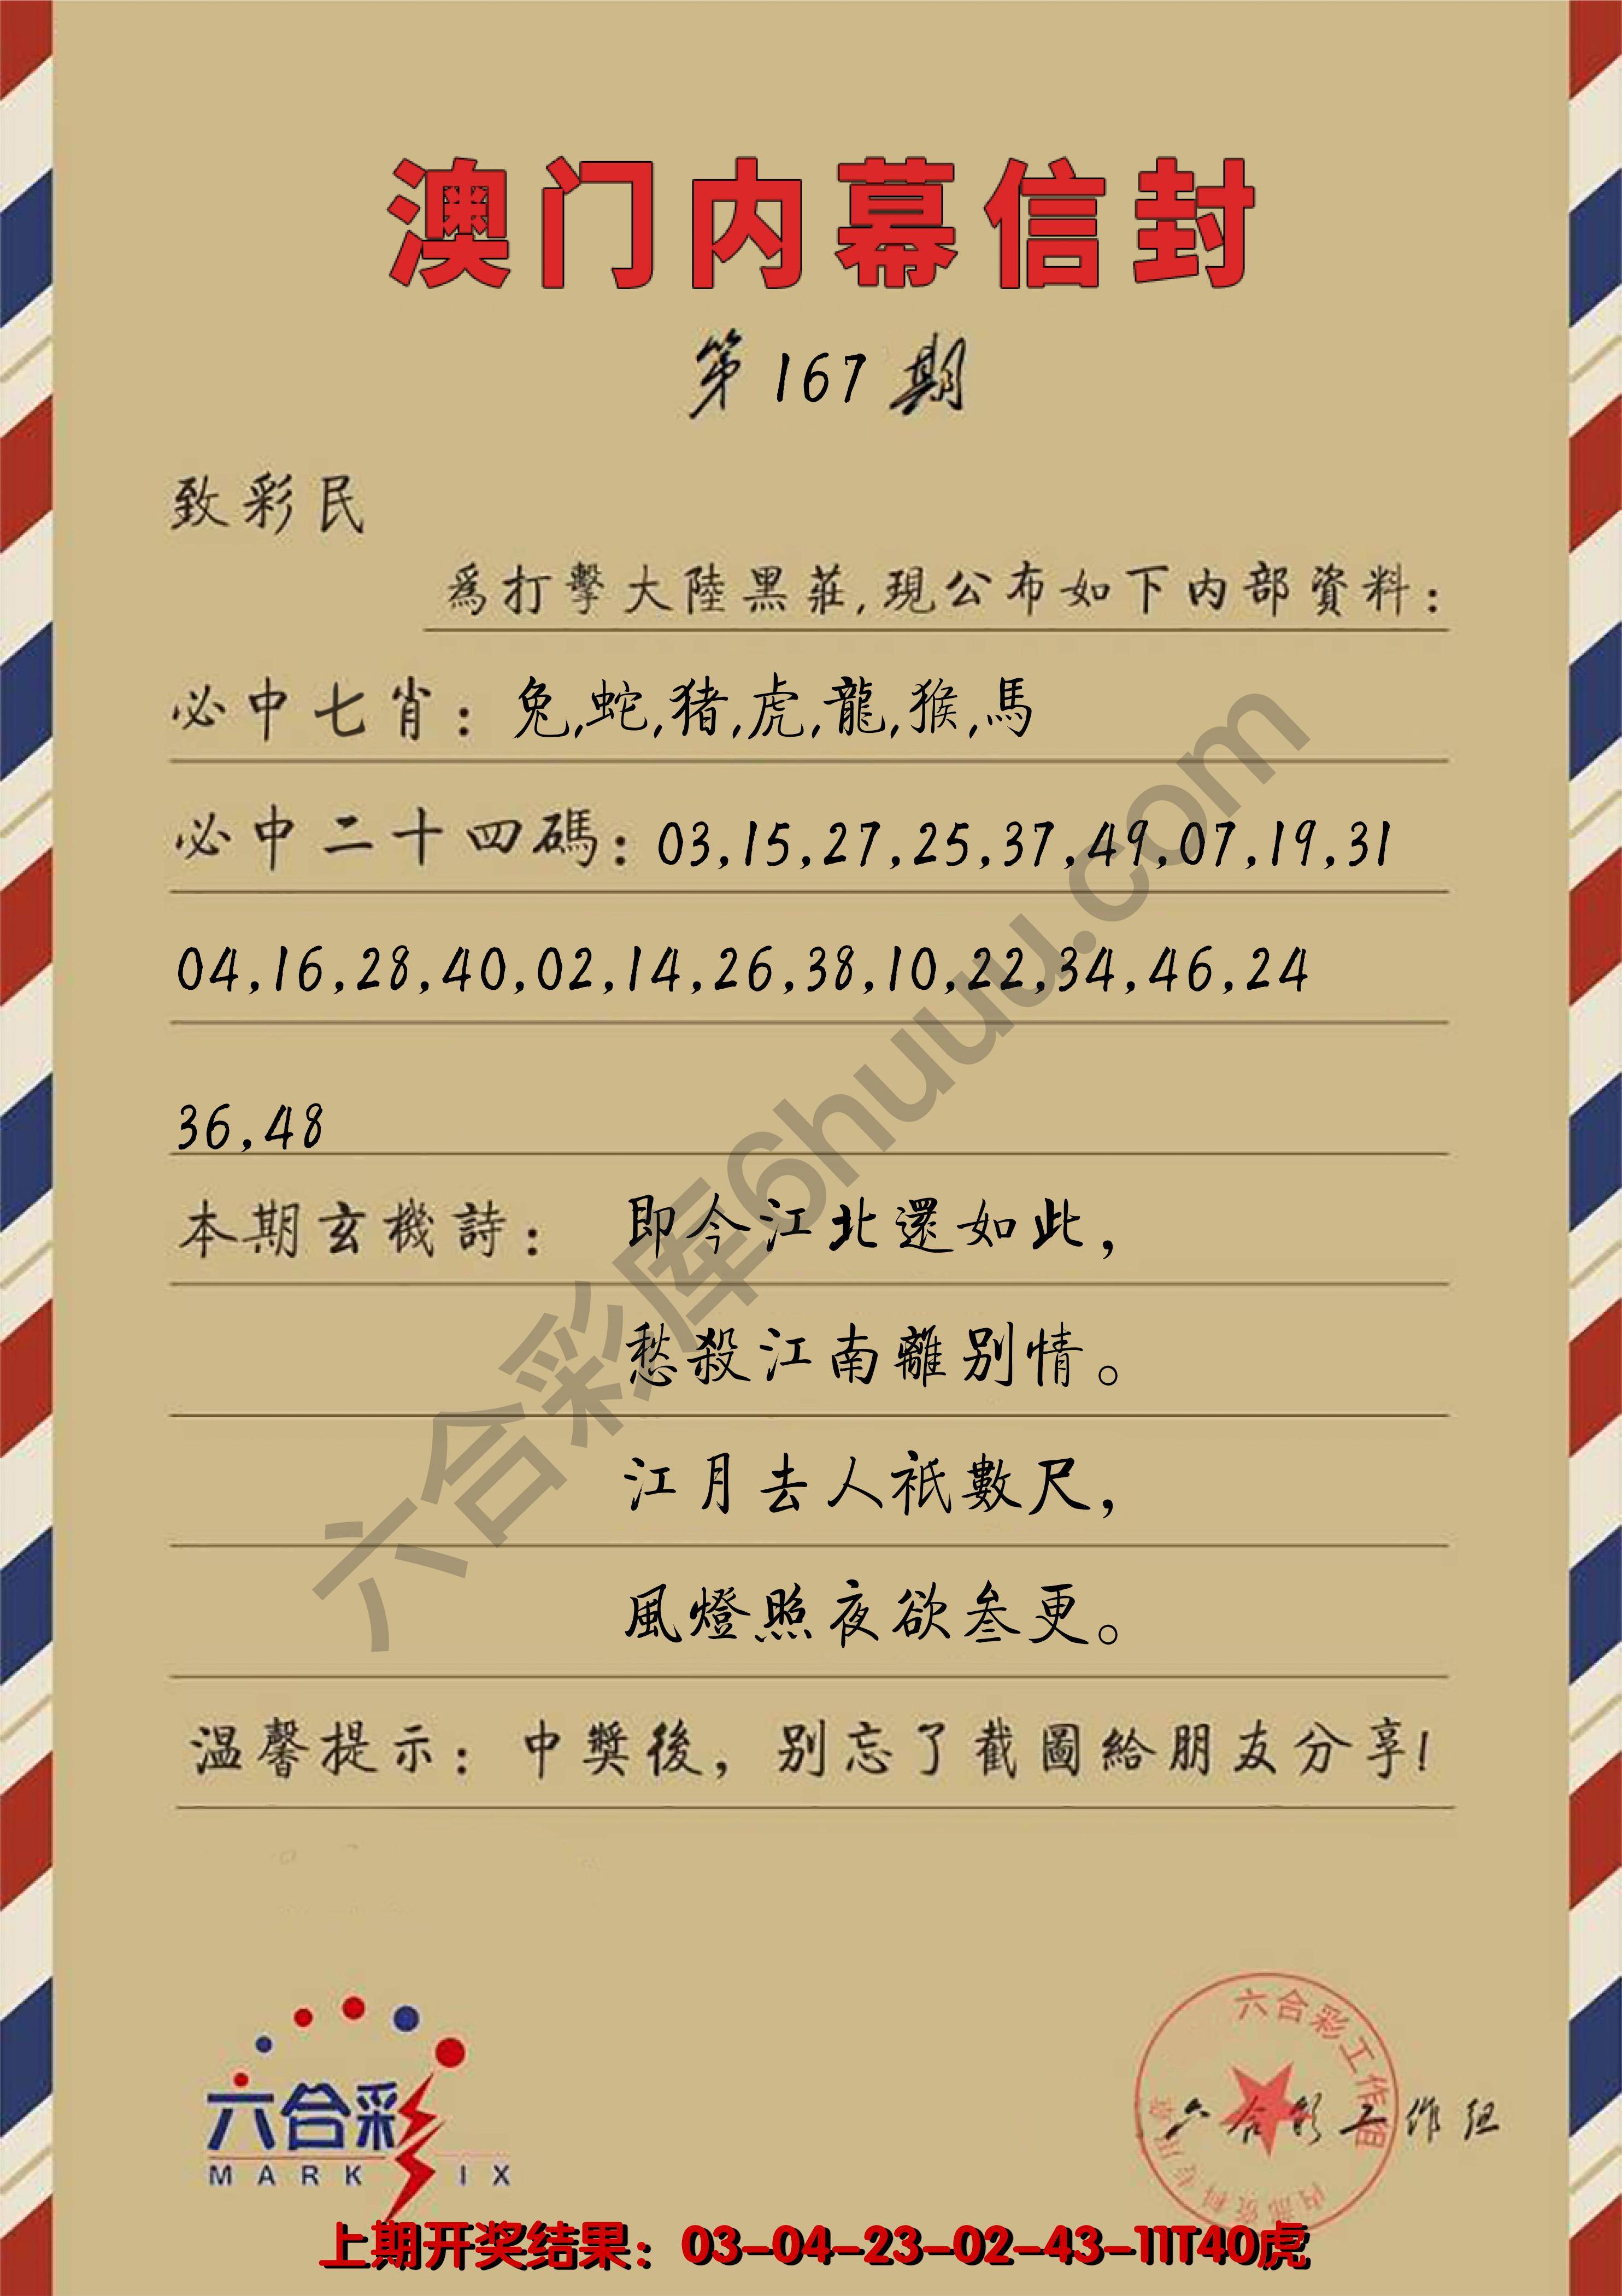 澳门内幕信封
第 167 期
致彩民
爲打擊大陸黑莊,現公布如下内部資料:
必中七肖: 兔,蛇,猪,虎,龍,猴,馬
必中二十四碼: 03,15,27,25,37,49,07,19,31
04,16,28,40,02,14,26,38,10,22,34,46,24
36,48
本期玄機詩: 即今江北還如此,
愁殺江南離别情。
江月去人祇數尺,
風燈照夜欲叁更。
温馨提示: 中獎後, 别忘了截圖給朋友分享!
六合彩库6huuu.com
六合彩
MARK SIX
六合彩工作组
内部资料专用章
六合彩工作组
上期开奖结果: 03-04-23-02-43-11T40虎